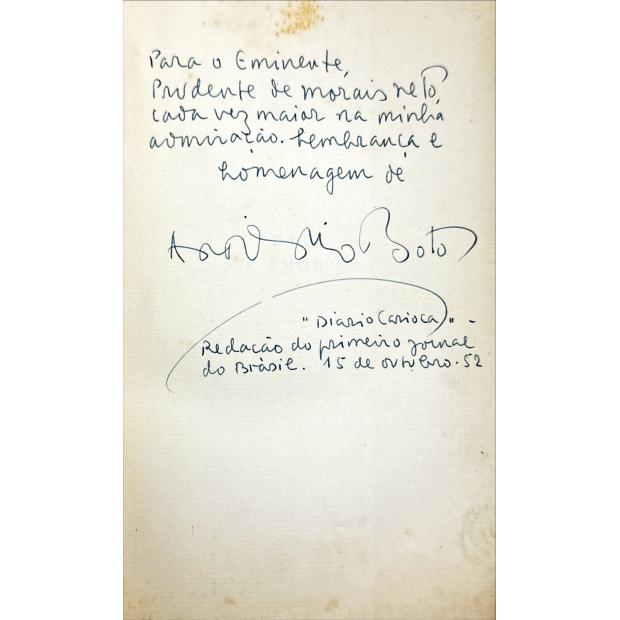 Para o Eminente,
Prudente de morais neto,
cada vez maior na minha
admiração. Lembrança e
homenagem de
António Boto
"Diario Carioca" -
Redação do primeiro jornal
do Brásil. 15 de outubro. 52